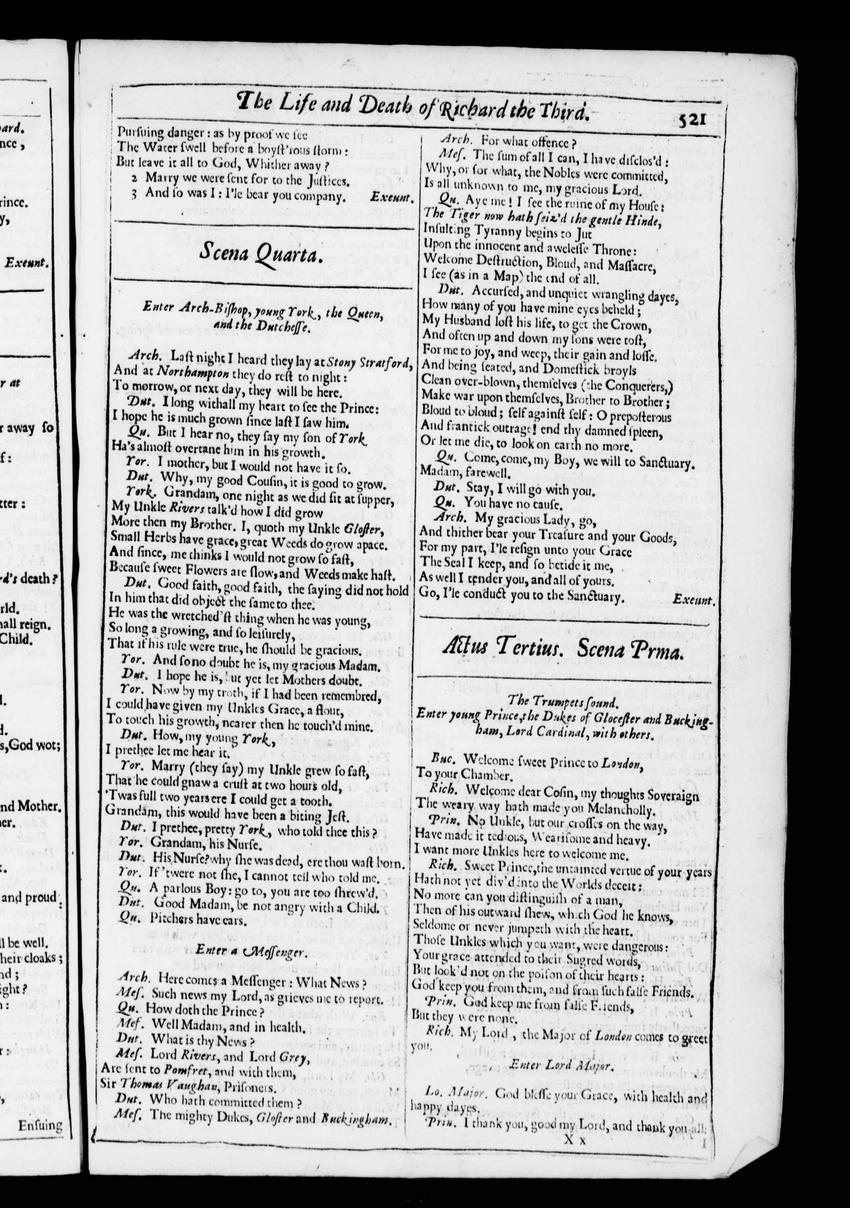 ard.
nce,
rince.
y,
Exeunt.
r at
r away so
f:
tter:
rd's death?
rld.
hall reign.
Child.
l.
d.
s, God wot;
nd Mother.
er.
.
and proud.
ll be well.
heir cloaks;
nd;
ight?
n:
r:
,
Ensuing
The Life and Death of Richard the Third.
521
Pursuing danger: as by proof we see
The Water swell before a boyst'rous storm:
But leave it all to God, Whither away?
2 Marry we were sent for to the Justices.
3 And so was I: I'le bear you company. Exeunt.
Scena Quarta.
Enter Arch-Bishop, young York, the Queen,
and the Dutchesse.
Arch. Last night I heard they lay at Stony Stratford,
And at Northampton they do rest to night:
To morrow, or next day, they will be here.
Dut. I long withall my heart to see the Prince:
I hope he is much grown since last I saw him.
Qu. But I hear no, they say my son of York
Ha's almost overtane him in his growth.
Yor. I mother, but I would not have it so.
Dut. Why, my good Cousin, it is good to grow.
York. Grandam, one night as we did sit at supper,
My Unkle Rivers talk'd how I did grow
More then my Brother. I, quoth my Unkle Gloster,
Small Herbs have grace, great Weeds do grow apace.
And since, me thinks I would not grow so fast,
Because sweet Flowers are slow, and Weeds make hast.
Dut. Good faith, good faith, the saying did not hold
In him that did object the same to thee.
He was the wretched'st thing when he was young,
So long a growing, and so leisurely,
That if his rule were true, he should be gracious.
Yor. And so no doubt he is, my gracious Madam.
Dut. I hope he is, but yet let Mothers doubt.
Yor. Now by my troth, if I had been remembred,
I could have given my Unkles Grace, a flout,
To touch his growth, nearer then he touch'd mine.
Dut. How, my young York,
I prethee let me hear it.
Yor. Marry (they say) my Unkle grew so fast,
That he could gnaw a crust at two hours old,
'Twas full two years ere I could get a tooth.
Grandam, this would have been a biting Jest.
Dut. I prethee, pretty York, who told thee this?
Yor. Grandam, his Nurse.
Dut. His Nurse? why she was dead, ere thou wast born.
Yor. If 'twere not she, I cannot tell who told me.
Qu. A parlous Boy: go to, you are too shrew'd.
Dut. Good Madam, be not angry with a Child.
Qu. Pitchers have ears.
Enter a Messenger.
Arch. Here comes a Messenger: What News?
Mes. Such news my Lord, as grieves me to report.
Qu. How doth the Prince?
Mes. Well Madam, and in health.
Dut. What is thy News?
Mes. Lord Rivers, and Lord Grey,
Are sent to Pomfret, and with them,
Sir Thomas Vaughan, Prisoners.
Dut. Who hath committed them?
Mes. The mighty Dukes, Gloster and Buckingham.
Arch. For what offence?
Mes. The sum of all I can, I have disclos'd:
Why, or for what, the Nobles were committed,
Is all unknown to me, my gracious Lord.
Qu. Aye me! I see the ruine of my House:
The Tiger now hath seiz'd the gentle Hinde,
Insulting Tyranny begins to Jut
Upon the innocent and awelesse Throne:
Welcome Destruction, Bloud, and Massacre,
I see (as in a Map) the end of all.
Dut. Accursed, and unquiet wrangling dayes,
How many of you have mine eyes beheld;
My Husband lost his life, to get the Crown,
And often up and down my sons were tost,
For me to joy, and weep, their gain and losse.
And being seated, and Domestick broyls
Clean over-blown, themselves (the Conquerers,)
Make war upon themselves, Brother to Brother;
Bloud to bloud; self against self: O preposterous
And frantick outrage! end thy damned spleen,
Or let me die, to look on earth no more.
Qu. Come, come, my Boy, we will to Sanctuary.
Madam, farewell.
Dut. Stay, I will go with you.
Qu. You have no cause.
Arch. My gracious Lady, go,
And thither bear your Treasure and your Goods,
For my part, I'le resign unto your Grace
The Seal I keep, and so betide it me,
As well I tender you, and all of yours.
Go, I'le conduct you to the Sanctuary. Exeunt.
Actus Tertius. Scena Prma.
The Trumpets sound.
Enter young Prince, the Dukes of Glocester and Bucking-
ham, Lord Cardinal, with others.
Buc. Welcome sweet Prince to London,
To your Chamber.
Rich. Welcome dear Cosin, my thoughts Soveraign
The weary way hath made you Melancholly.
Prin. No Unkle, but our crosses on the way,
Have made it tedious, Wearisome and heavy.
I want more Unkles here to welcome me.
Rich. Sweet Prince, the untainted vertue of your years
Hath not yet div'd into the Worlds deceit:
No more can you distinguish of a man,
Then of his outward shew, which God he knows,
Seldome or never jumpeth with the heart.
Those Unkles which you want, were dangerous:
Your grace attended to their Sugred words,
But look'd not on the poison of their hearts:
God keep you from them, and from such false Friends.
Prin. God keep me from false Friends,
But they were none.
Rich. My Lord, the Major of London comes to greet
you.
Enter Lord Major.
Lo. Major. God blesse your Grace, with health and
happy dayes.
Prin. I thank you, good my Lord, and thank you all:
X x
I